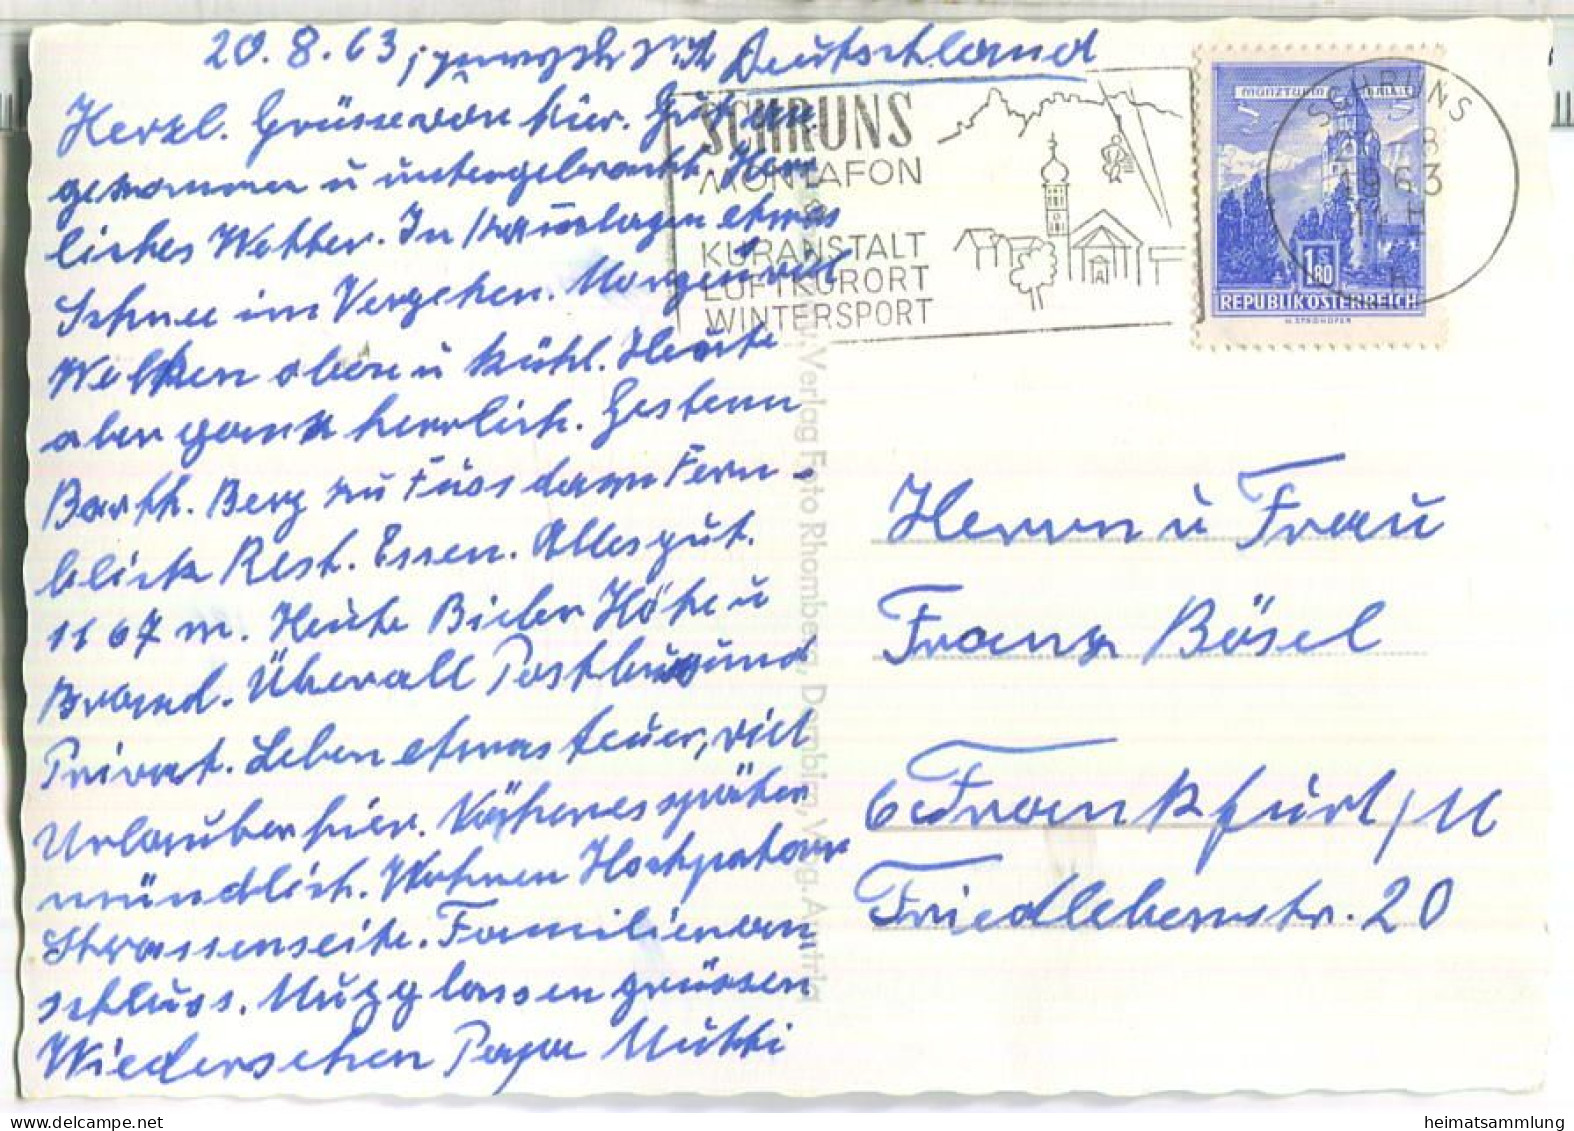 20.8.63
Deutschland
Herzl. Grüsse von hier. Gut an
gekommen u untergebracht. Herr
liches Wetter. In etwas
Schnee im Vergehen. Morgen viel
Wolken oben u kühl. Heute
aber ganz herrlich. Gestern
Barth. Berg zu Fuss dann Fern-
blick Rest. Essen. Alles gut.
1167 m. Heute Bieler Höhe u
Brand. Überall Postbus und
Privat. Leben etwas teuer, viel
Urlauber hier. Näheres später
mündlich. Wohnen
Strassenseite. Familienan
schluss. lassen grüssen
Wiedersehen Papa Mutti
SCHRUNS
MONTAFON
KURANSTALT
LUFTKURORT
WINTERSPORT
MÜNZTURM HALL I.T.
S 1.80
REPUBLIK ÖSTERREICH
H. STROHOFER
SCHRUNS
1963
Verlag Foto Rhomberg, Dornbirn, Vlbg. Austria
Herrn u Frau
Franz Bösel
6 Frankfurt/M
Friedlebenstr. 20
heimatsammlung